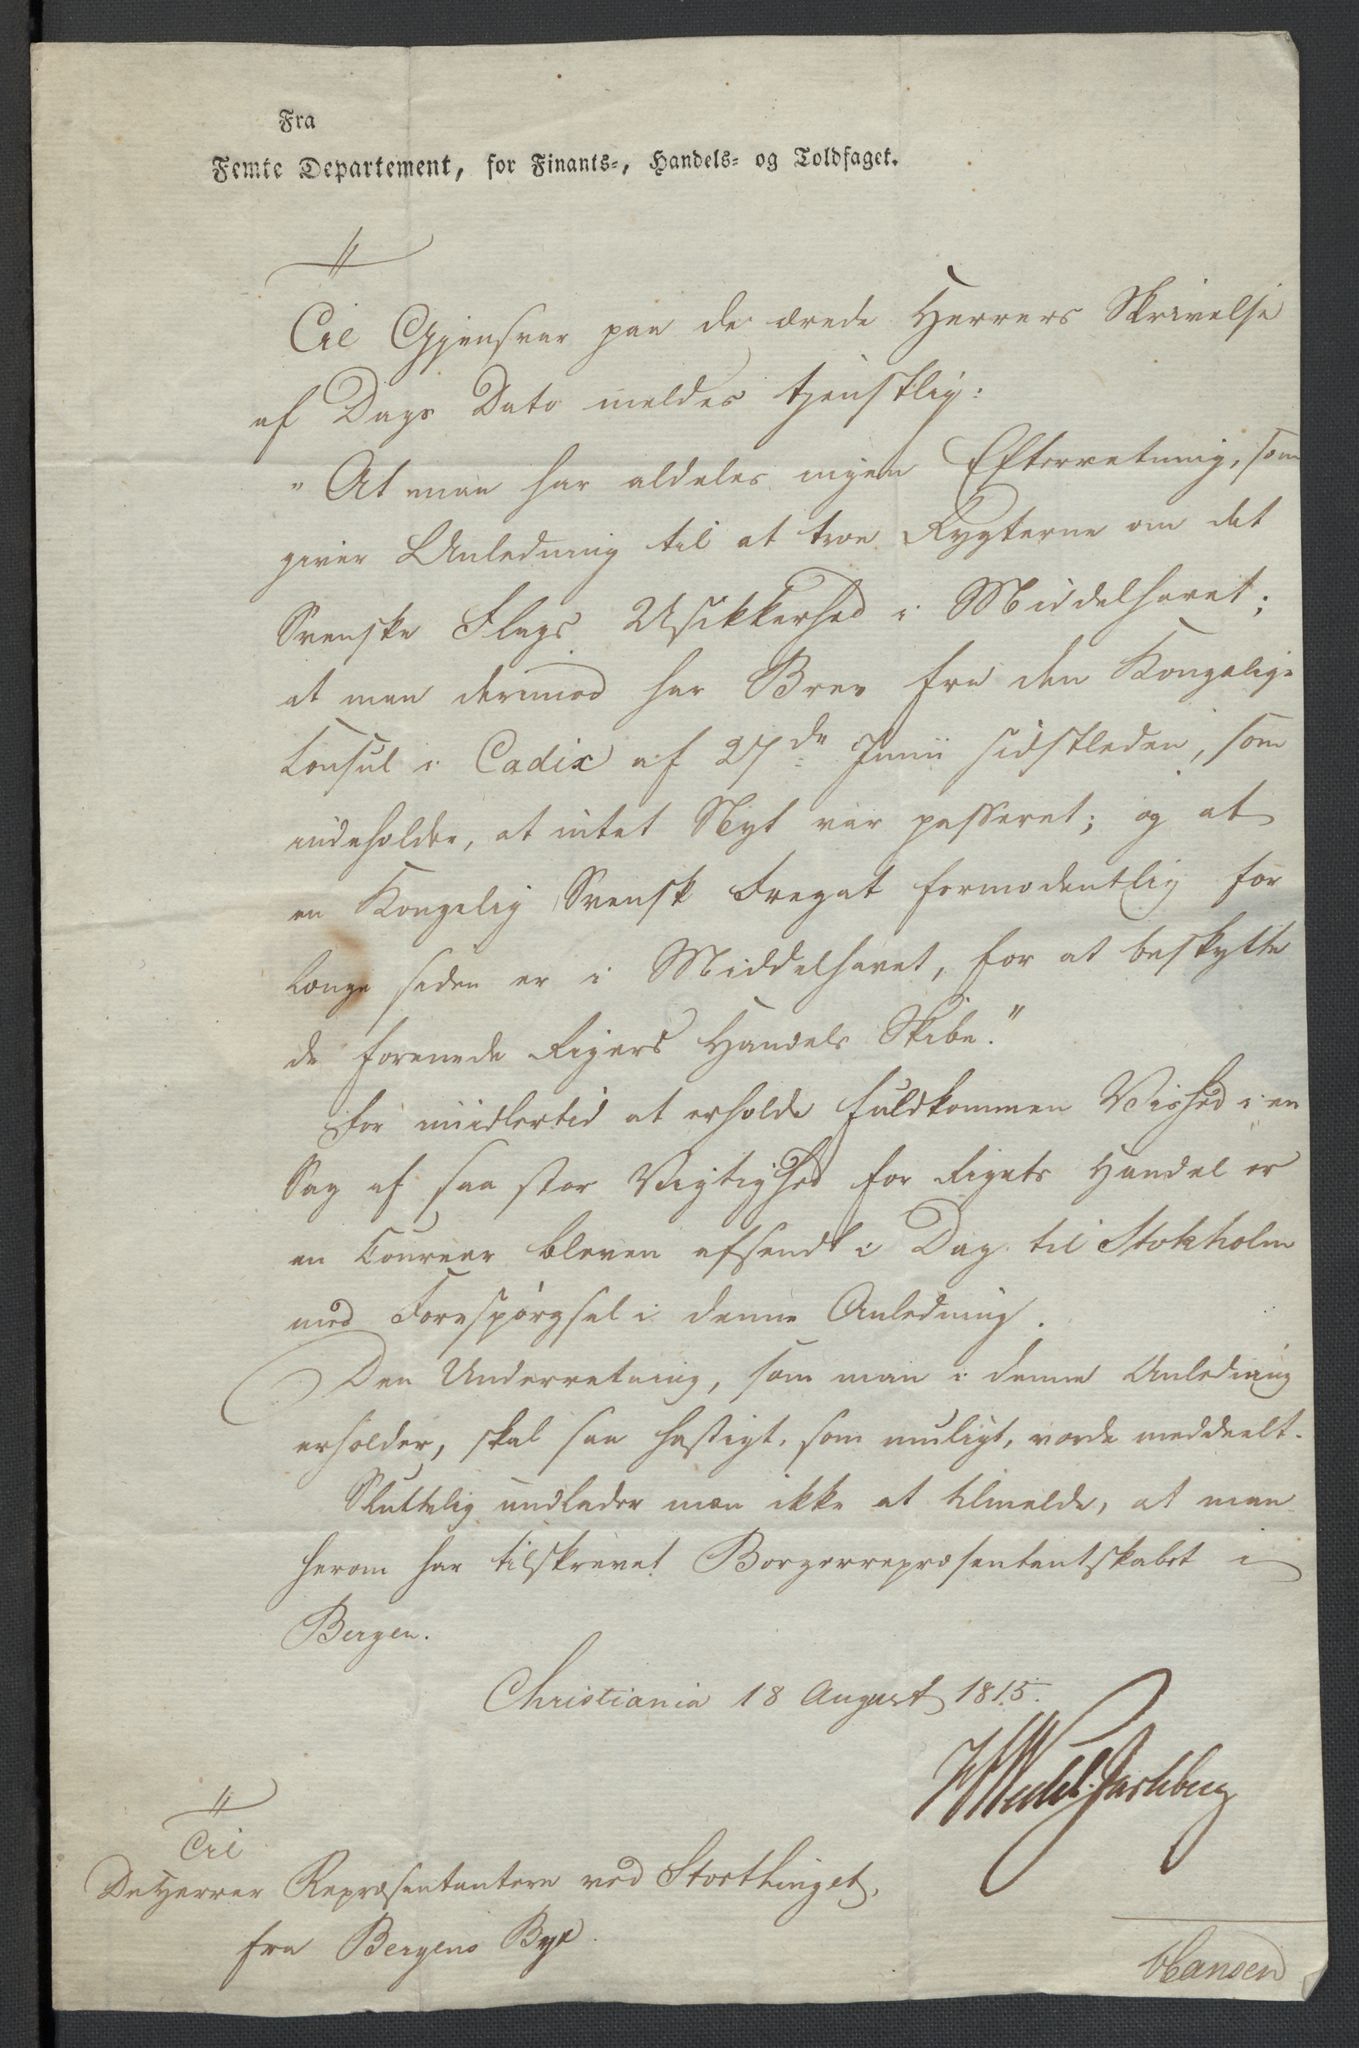 Fra
Femte Departement, for Finants-, Handels- og Toldfaget.
Til Gjensvar paa de ærede Herrers Skrivelse
af Dags Dato meldes tjenstlig:
"At man har aldeles ingen Efterretning, som
giver Anledning til at troe Rygterne om det
Svenske Flags Usikkerhed i Middelhavet;
at man derimod har Brev fra den Kongelige
Consul i Cadix af 27de Junii sidstleden, som
indeholder, at intet Nyt var passeret; og at
en Kongelig Svensk Fregat formodentlig for
længe siden er i Middelhavet, for at beskytte
de forenede Rigers Handels Skibe."
For midlertid at erholde fuldkommen Vished i en
Sag af saa stor Vigtighed for Rigets Handel er
en Coureer bleven afsendt i Dag til Stokholm
med Forespørgsel i denne Anledning.
Den Underretning, som man i denne Anledning
erholder, skal saa hastigt, som muligt, vorde meddeelt.
Sluttelig undlader man ikke at tilmelde, at man
herom har tilskrevet Borgerrepræsentantskabet i
Bergen.
Christiania 18 August 1815.
HWedel Jarlsberg
Til
De Herrer Repræsentantere ved Storthinget,
fra Bergens Bye.
Hansen